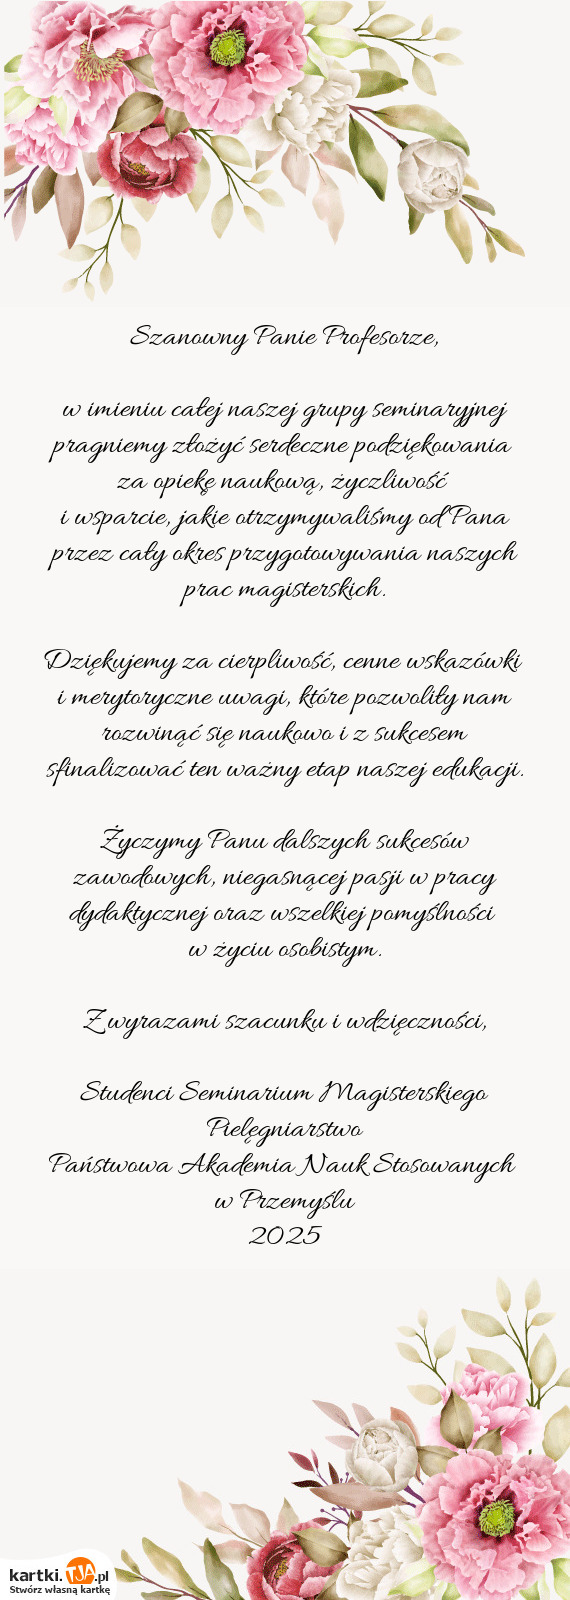 Szanowny Panie Profesorze,
w imieniu całej naszej grupy seminaryjnej
pragniemy złożyć serdeczne podziękowania
za opiekę naukową, życzliwość
i wsparcie, jakie otrzymywaliśmy od Pana
przez cały okres przygotowywania naszych
prac magisterskich.
Dziękujemy za cierpliwość, cenne wskazówki
i merytoryczne uwagi, które pozwoliły nam
rozwinąć się naukowo i z sukcesem
sfinalizować ten ważny etap naszej edukacji.
Życzymy Panu dalszych sukcesów
zawodowych, niegasnącej pasji w pracy
dydaktycznej oraz wszelkiej pomyślności
w życiu osobistym.
Z wyrazami szacunku i wdzięczności,
Studenci Seminarium Magisterskiego
Pielęgniarstwo
Państwowa Akademia Nauk Stosowanych
w Przemyślu
2025
kartki.TJA.pl
Stwórz własną kartkę